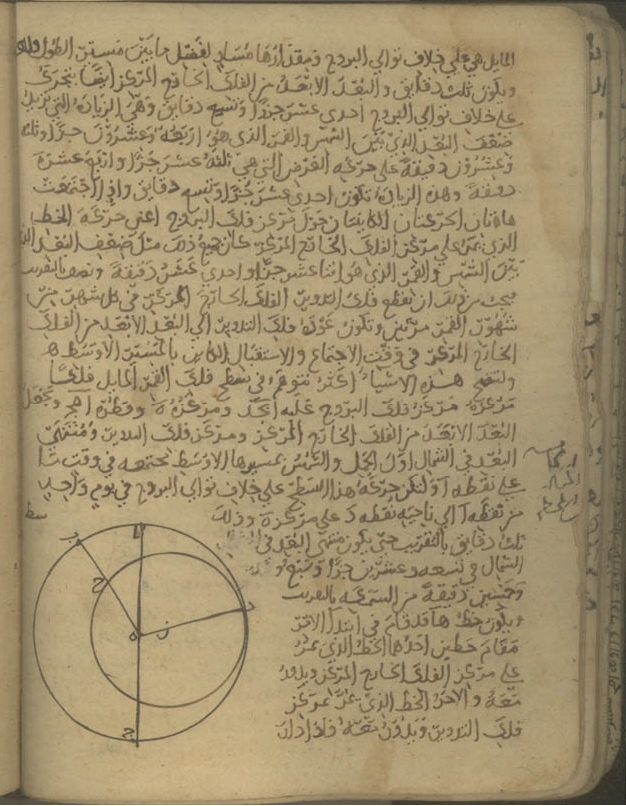 المايل هي على خلاف توالي البروج ومقدارها مساو لفضل ما بين مسير الطول
ويكون ثلث دقايق والبعد الابعد من الفلك الخارج المركز ايضا يتحرك
على خلاف توالي البروج احدى عشر جزوا وتسع دقايق وهي الزيادة التي يزيد
ضعف البعد الذي بين الشمس والقمر الذي هو اربعة وعشرون جزا وثلثة
وعشرون دقيقة على حركة العرض التي هي ثلثة عشر جزا واربع عشرة
دقيقة وهذه الزيادة تكون احدى عشر جزا وتسع دقايق واذا اجتمعت
هاتان الحركتان الكاينتان حول مركز فلك البروج اعني حركة الخط
الذي يمر على مركز الفلك الخارج المركز كان جميع ذلك مثل ضعف البعد الذي
بين الشمس والقمر الذي هو اثنا عشر جزا واحدى عشر دقيقة ونصف بالتقريب
يجب من ذلك ان يقطع فلك التدوير الفلك الخارج المركز في كل شهر من
شهور القمر مرتين وتكون عودة فلك التدوير الى البعد الابعد من الفلك
الخارج المركز في وقت الاجتماع والاستقبال الكاين بالمسير الاوسط
ولتضح هذه الاشياء اكثر نتوهم في سطح فلك القمر المايل فلكا
مركزه مركز فلك البروج عليه ابجد ومركزه ه وقطره اهج ونجعل
البعد الابعد من الفلك الخارج المركز ومركز فلك التدوير ومنتهى
البعد في الشمال اول الحمل والشمس بمسيرها الاوسط مجتمعة في وقت ما
على نقطة ا ولتكن حركة هذا السطح على خلاف توالي البروج في يوم واحد
من نقطة ا الى ناحية نقطة د على مركز ه وذلك
ثلث دقايق بالتقريب حتى يكون منتهى البعد في
الشمال في تسعة وعشرين جزا وسبع
وخمسين دقيقة من السمكة بالتقريب
ويكون خط ها قد قام في ابتدا الامر
مقام خطين احدهما الخط الذي يمر
على مركز الفلك الخارج المركز ويدور
معه والاخر الخط الذي يمر بمركز
فلك التدوير ويدور معه فاذا دار
ا
ب
ح
د
ه
ز
ج